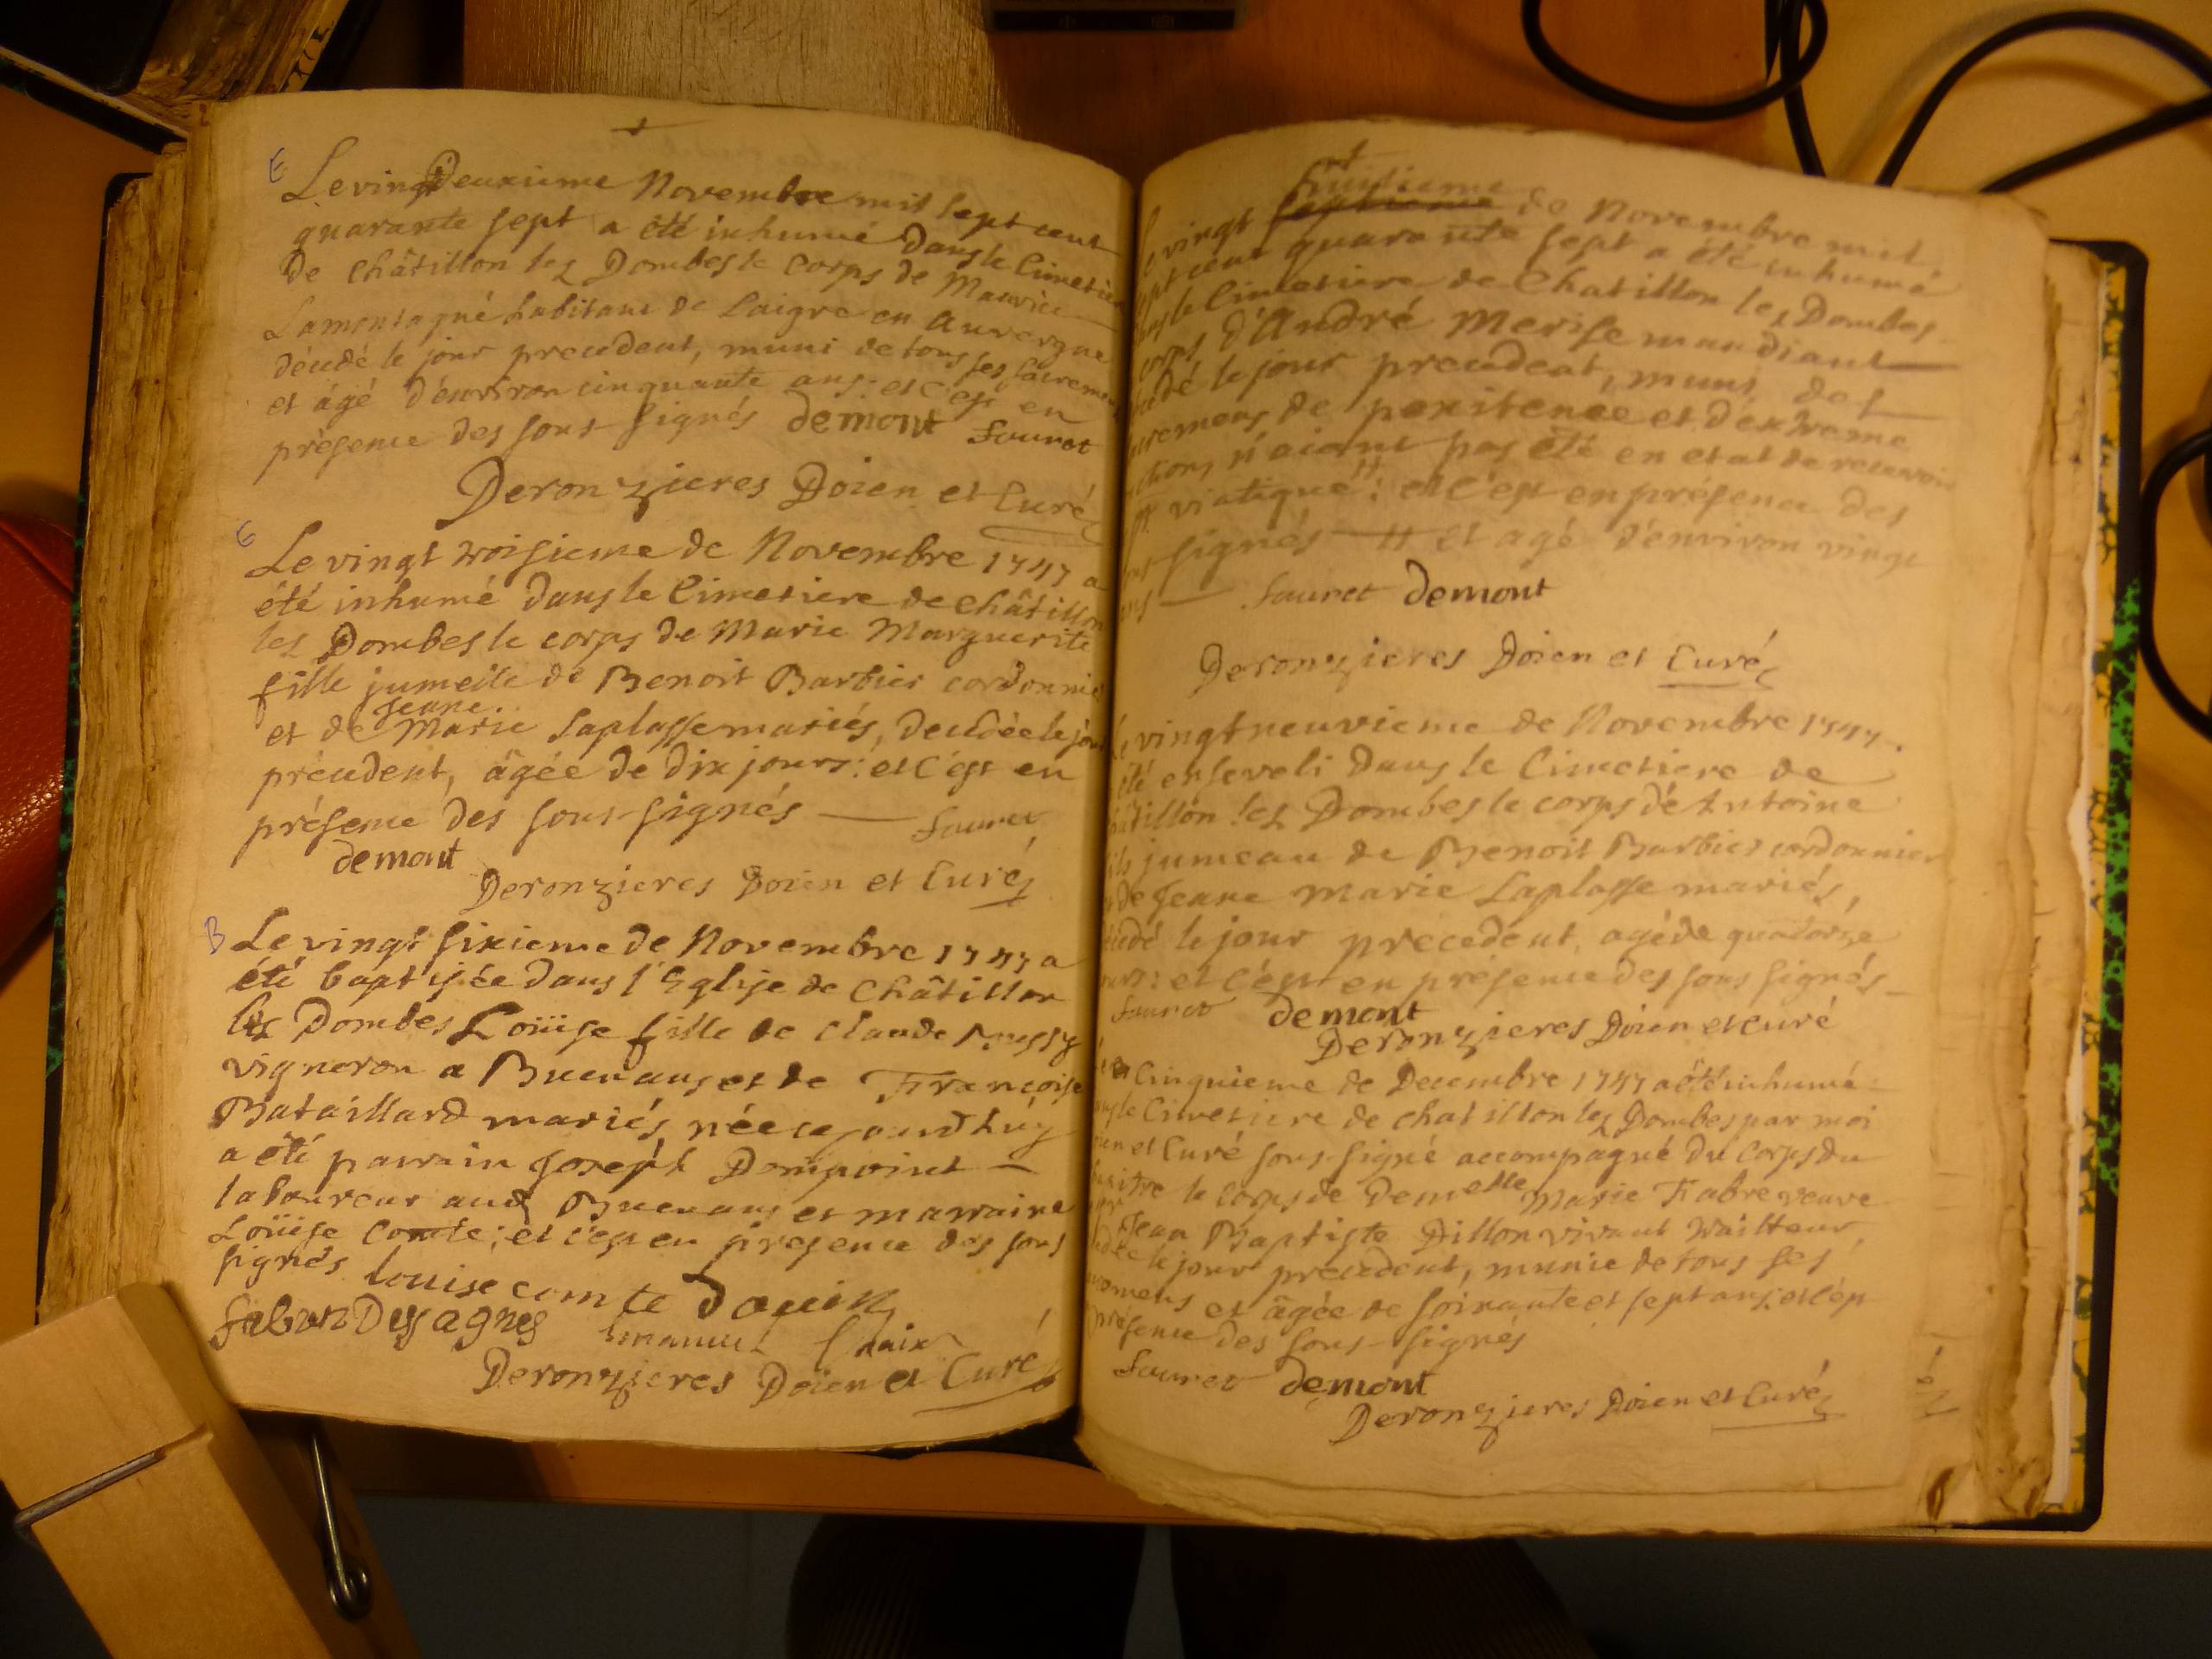 E
Le vingt Deuxieme Novembre mil sept cent
quarante sept a été inhumé Dans le Cimetiere
de Châtillon lez Dombes le Corps de Maurice
Lamontagné habitant de Laigre en Auvergne
décedé le jour precedent, muni de tous ses sacremens
et âgé d'environ cinquante ans: et c'est en
présence des sous-signés demont Sauret
Deronzieres Doien et Curé
E
Le vingt troisieme de Novembre 1747 a
été inhumé dans le Cimetiere de Châtillon
lez Dombes le corps de Marie Marguerite
fille jumelle de Benoit Barbier cordonnie
Jeane
et de Marie Laplasse mariés, decedée le jour
precedent, âgée de dix jours: et c'est en
présence des sous-signés — Sauret
demont
Deronzieres Doien et Curé
B
Le vingt sixieme de Novembre 1747 a
été baptisée dans l'Eglise de Châtillon
les Dombes Loüise fille de Claude
vigneron a Buenans et de Françoise
Bataillard mariés, née cejourdhuy
a été parrain Joseph Dompoint —
laboureur aud Buenans et marraine
Loüise Comte; et c'est en presence des sous
signés louise comte Douin
Dessagnes
Deronzieres Doien et Curé
huitieme
le vingt septieme de Novembre mil
sept cent quarante sept a été inhumé
dans le Cimetiere de Chatillon lez Dombes
corps d'André Merise mandiant —
cedé le jour precedent, muni des —
sacremens de penitence et d'extreme
ction, n'aiant pas été en etat de recevoir
St. viatique #: et c'est en présence des
sous signés — # et agé d'environ vingt
ans — Sauret demont
Deronzieres Doien et Curé
Le vingt neuvieme de Novembre 1747
été enseveli Dans le Cimetiere de
hâtillon lez Dombes le corps de Antoine
fils jumeau de Benoit Barbier cordonnier
et de Jeane Marie Laplasse mariés,
cedé le jour précedent, agé de quatorze
jours: et c'est en présence des sous signés —
Sauret demont
Deronzieres Doien et Curé
le Cinquieme de Decembre 1747 a été inhumé
ans le Cimetiere de Chatillon lez Dombes par moi
ien et Curé sous-signé accompagné du Corps du
le Corps de Demelle Marie Fabre veuve
Jean Baptiste Dillon vivant traitteur,
cedée le jour precedent, munie de tous ses
cremens et âgée de soixante et sept ans: et c'est
présence des sous-signés
Sauret demont
Deronzieres Doien et Curé